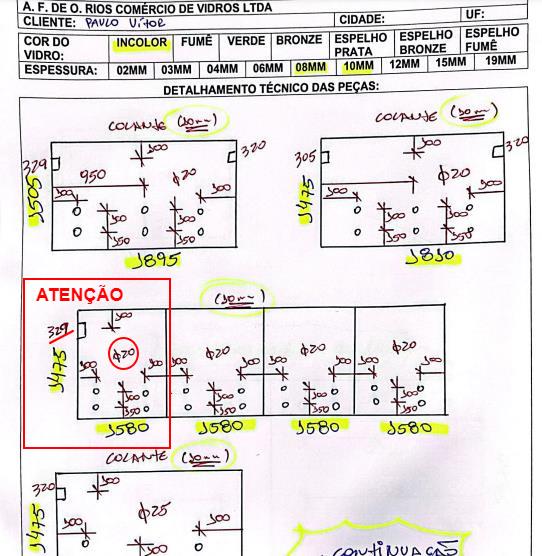 A. F. DE O. RIOS COMÉRCIO DE VIDROS LTDA
CLIENTE: PAULO Vitor CIDADE: UF:
COR DO VIDRO: INCOLOR FUMÊ VERDE BRONZE ESPELHO PRATA ESPELHO BRONZE ESPELHO FUMÊ
ESPESSURA: 02MM 03MM 04MM 06MM 08MM 10MM 12MM 15MM 19MM
DETALHAMENTO TÉCNICO DAS PEÇAS:
COLANTE (10mm)
329 100 320
950 ϕ20
1505
100 100
100 100
150 150
1895
COLANTE (10mm)
305 100 320
ϕ20
1475
100 100
100 100
150 150
1810
ATENÇÃO
(10mm)
329 100
ϕ20 ϕ20 ϕ20 ϕ20
1475
100 100 100 100 100
100 100 100 100
150 150 150 150
1580 1580 1580 1580
COLANTE (10mm)
320 100
ϕ25
1475
100 100
CONTINUAÇÃO